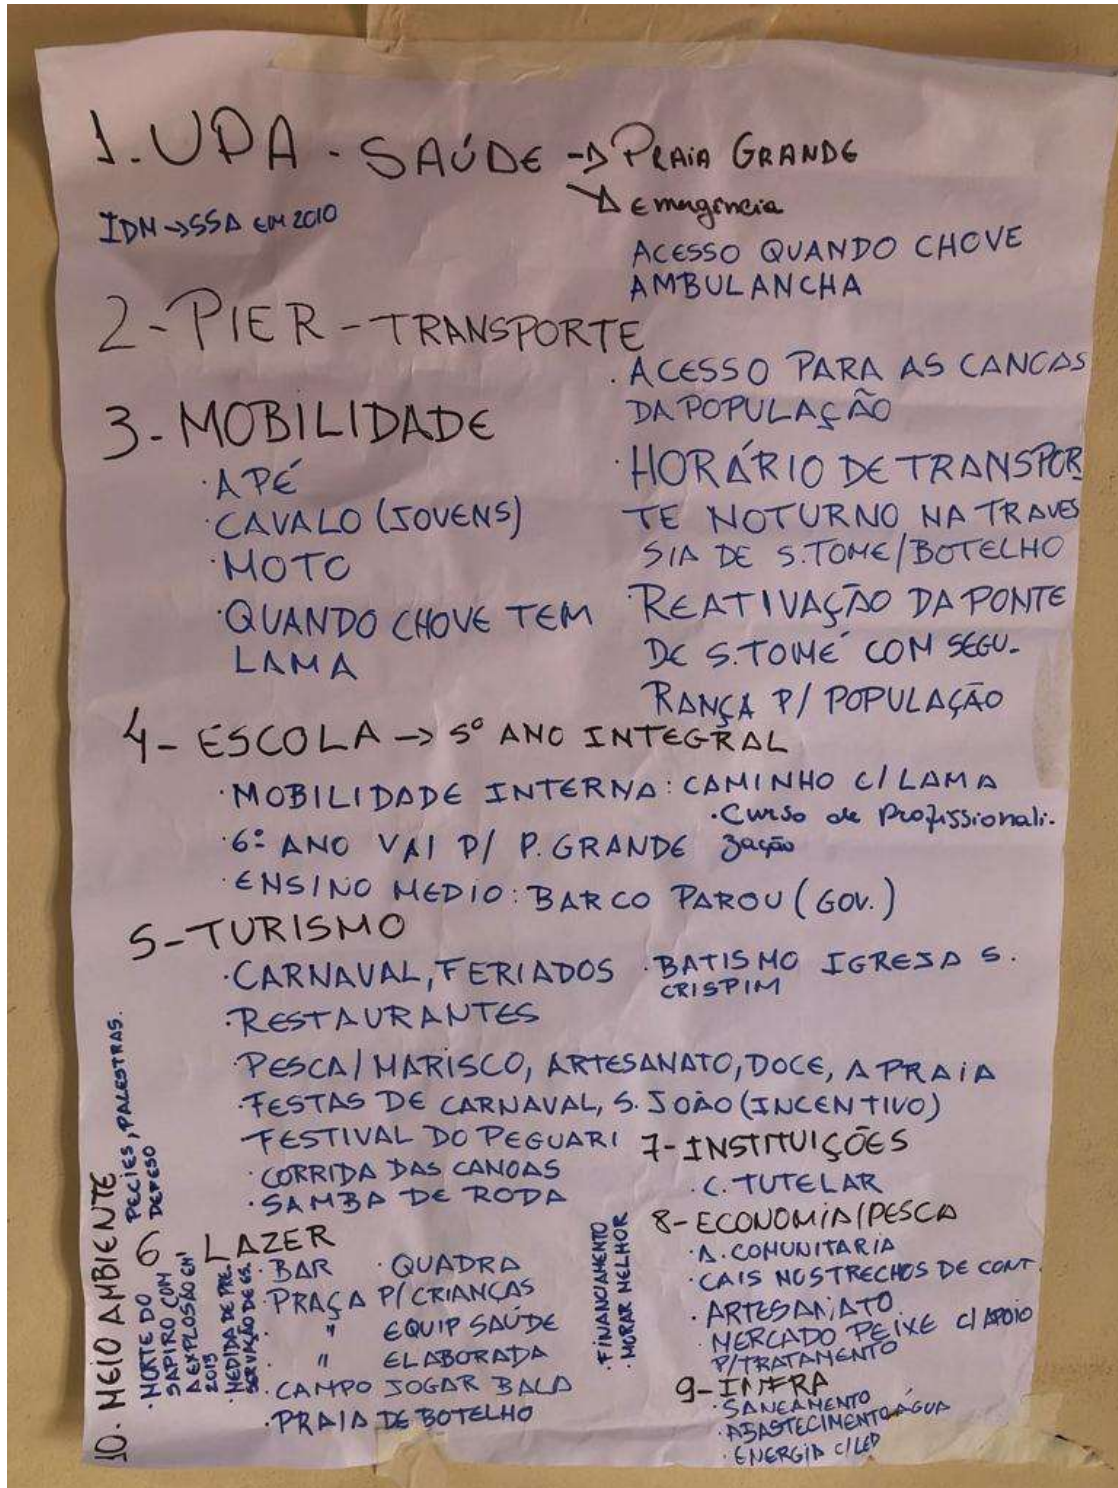 1. UPA - SAÚDE -> PRAIA GRANDE
-> Emergência
IDN -> SSA EM 2010
ACESSO QUANDO CHOVE
AMBULANCHA
2 - PIER - TRANSPORTE
· ACESSO PARA AS CANOAS
DA POPULAÇÃO
· HORÁRIO DE TRANSPOR
TE NOTURNO NA TRAVES
SIA DE S. TOME/BOTELHO
REATIVAÇÃO DA PONTE
DE S. TOMÉ COM SEGU-
RANÇA P/ POPULAÇÃO
3 - MOBILIDADE
· A PÉ
· CAVALO (JOVENS)
· MOTO
· QUANDO CHOVE TEM
LAMA
4 - ESCOLA -> 5º ANO INTEGRAL
· MOBILIDADE INTERNA: CAMINHO C/ LAMA
· Curso de Profissionali-
zação
· 6º ANO VAI P/ P. GRANDE
· ENSINO MEDIO: BARCO PAROU (GOV.)
5 - TURISMO
· CARNAVAL, FERIADOS
· BATISMO IGREJA S.
CRISPIM
· RESTAURANTES
PESCA/MARISCO, ARTESANATO, DOCE, A PRAIA
· FESTAS DE CARNAVAL, S. JOÃO (INCENTIVO)
FESTIVAL DO PEGUARI
· CORRIDA DAS CANOAS
· SAMBA DE RODA
6 - LAZER
· BAR · QUADRA
· PRAÇA P/ CRIANÇAS
· " EQUIP SAÚDE
· " ELABORADA
· CAMPO JOGAR BALA
· PRAIA DE BOTELHO
· FINANCIAMENTO
· MORAR MELHOR
7 - INSTITUIÇÕES
· C. TUTELAR
8 - ECONOMIA/PESCA
· A. COMUNITARIA
· CAIS NOS TRECHOS DE CONT.
· ARTESANATO
· MERCADO PEIXE C/ APOIO
P/ TRATAMENTO
9 - INFRA
· SANEAMENTO
· ABASTECIMENTO ÁGUA
· ENERGIA C/ LED
10. MEIO AMBIENTE
· MORTE DO
SAPIRO COM
A EXPLOSÃO EM
2013
· MEDIDA DE PRE-
SERVAÇÃO DE ES-
PECIES, PALESTRAS.
DEFESO